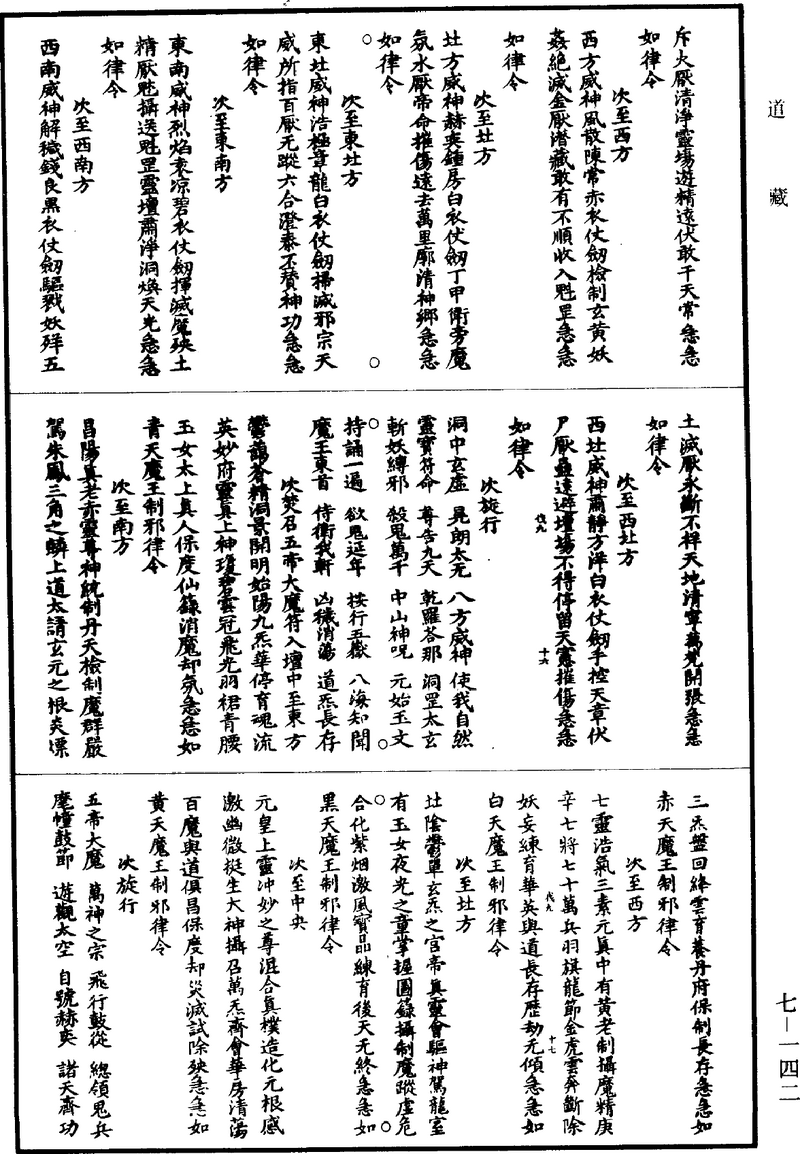 道藏
斥火厭清淨靈場遊精遠伏敢干天常急急
如律令
次至西方
西方威神風散陳常赤衣仗劒檢制玄黃妖
姦絶滅金厭潜藏敢有不順收入魁罡急急
如律令
次至北方
北方威神赫奕鍾房白衣伏劒丁甲衛旁魔
氛水厭帝命摧傷遠去萬里廓清神鄉急急
如律令
次至東北方
東北威神浩極章龍白衣仗劒掃滅邪宗天
威所指百厭无蹤六合澄泰丕賛神功急急
如律令
次至東南方
東南威神烈焰袁凉碧衣仗劒揮滅魔殃土
精厭魁攝送魁罡靈壇肅淨洞煥天光急急
如律令
次至西南方
西南威神解穢錢良黑衣仗劒驅戮妖殃五
土滅厭永斷不祥天地清寧萬梵開張急急
如律令
次至西北方
西北威神肅靜方洋白衣仗劒手控天章伏
尸厭蟲遠避壇場不得停留天憲摧傷急急
如律令
伐九
十六
次旋行
洞中玄虛 晃朗太元 八方威神 使我自然
靈寶符命 尊告九天 乾羅荅那 洞罡太玄
斬妖縛邪 殺鬼萬千 中山神呪 元始玉文
持誦一遍 欲鬼延年 按行五嶽 八海知聞
魔王束首 侍衛我軒 凶穢消蕩 道炁長存
次焚召五帝大魔符入壇中至東方
鬱藹蒼精洞景開明始陽九炁華停育魂流
英妙府靈真上神瓊碧雲冠飛光羽裙青腰
玉女太上真人保度仙籙消魔却氛急急如
青天魔王制邪律令
次至南方
昌陽真老赤靈尊神統制丹天檢制魔群嚴
駕朱鳳三角之麟上道太請玄元之根炎熛
三炁盤回絳雲育養丹府保制長存急急如
赤天魔王制邪律令
次至西方
七靈浩氣三素元真中有黃老制攝魔精庚
辛七將七十萬兵羽旗龍節金虎雲奔斷除
妖妄練育華英與道長存歷劫无傾急急如
白天魔王制邪律令
伐九
十七
次至北方
北陰鬱單玄炁之宮帝真靈會驅神駕龍室
有玉女夜光之童掌握圖籙攝制魔蹤虛危
合化紫烟激風寶品練育後天无終急急如
黑天魔王制邪律令
次至中央
元皇上靈冲妙之尊混合真樸造化元根感
激幽微挺生大神攝召萬炁齊會華房清蕩
百魔與道俱昌保度却災滅試除殃急急如
黃天魔王制邪律令
次旋行
五帝大魔 萬神之宗 飛行鼓從 總領鬼兵
麾幢鼓節 遊觀太空 自號赫奕 諸天齊功
七—一四二